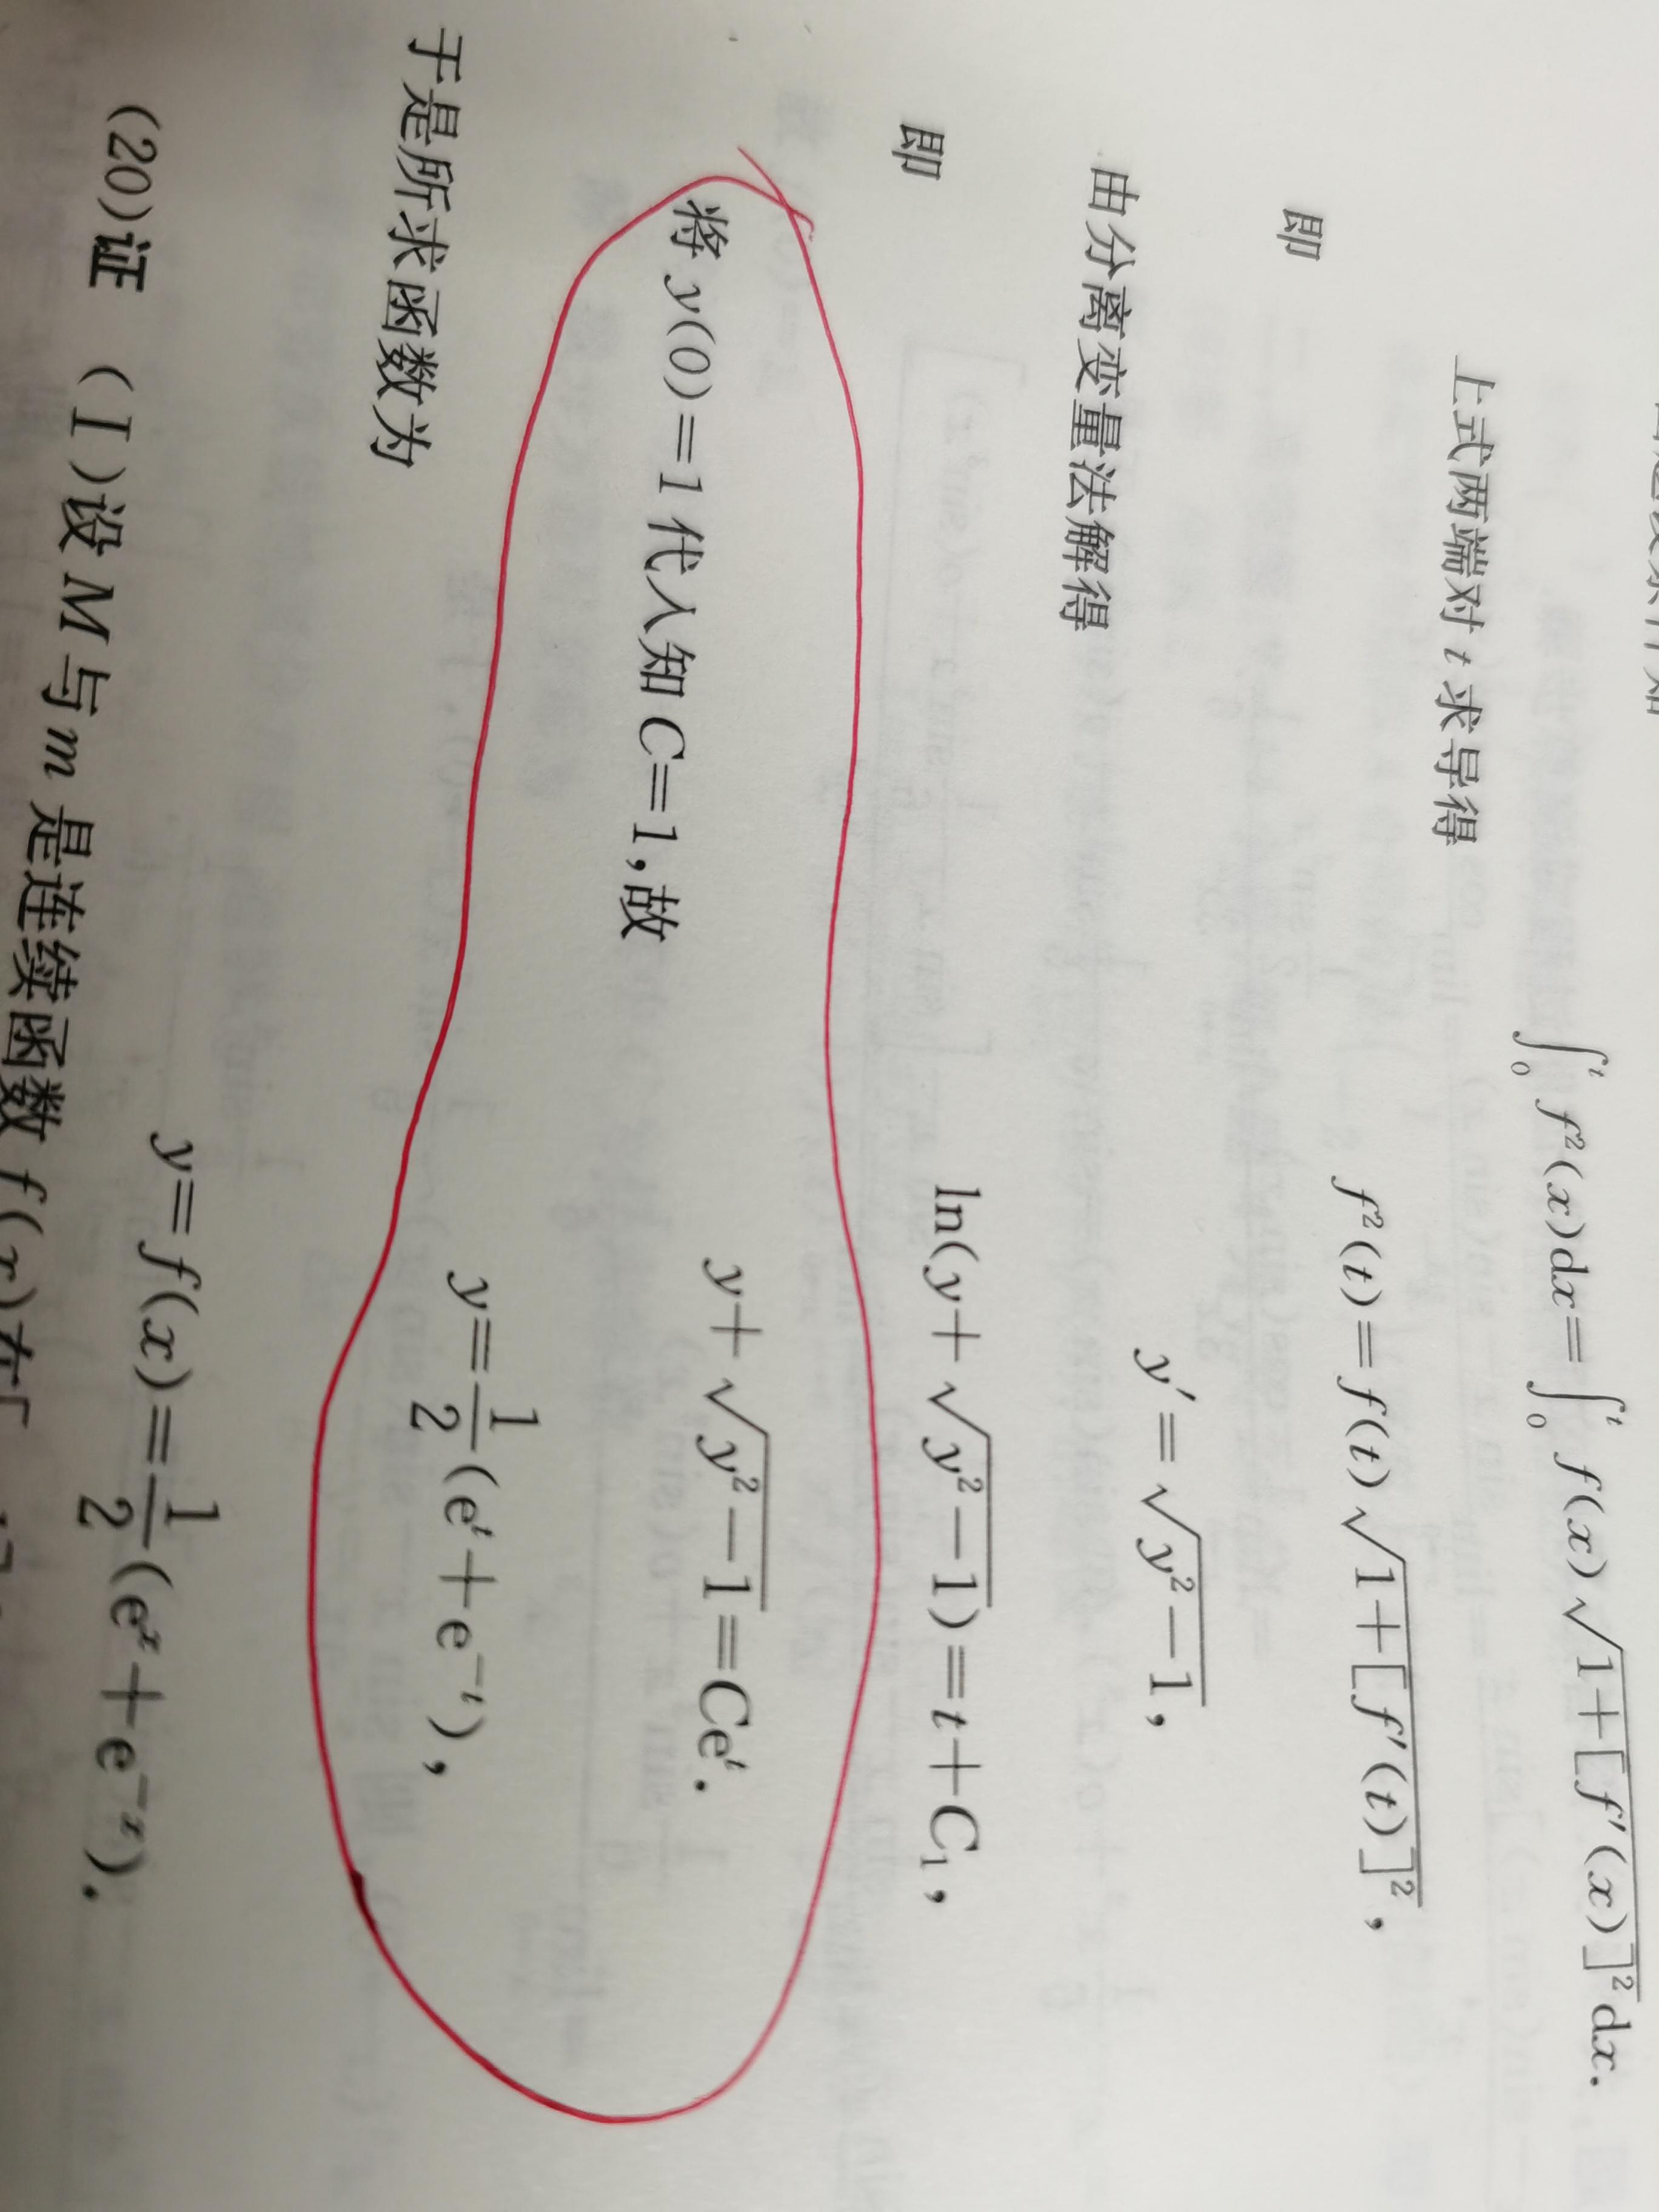 上式两端对 t 求导得
∫₀ᵗ f²(x)dx=∫₀ᵗ f(x)√(1+[f′(x)]²)dx.
f²(t)=f(t)√(1+[f′(t)]²),
即
y′=√(y²−1),
由分离变量法解得
ln(y+√(y²−1))=t+C₁,
即
y+√(y²−1)=Ceᵗ.
将 y(0)=1 代入知 C=1,故
y=1/2(eᵗ+e⁻ᵗ),
于是所求函数为
y=f(x)=1/2(eˣ+e⁻ˣ).
(20)证 (Ⅰ)设 M 与 m 是连续函数 f(x)在[